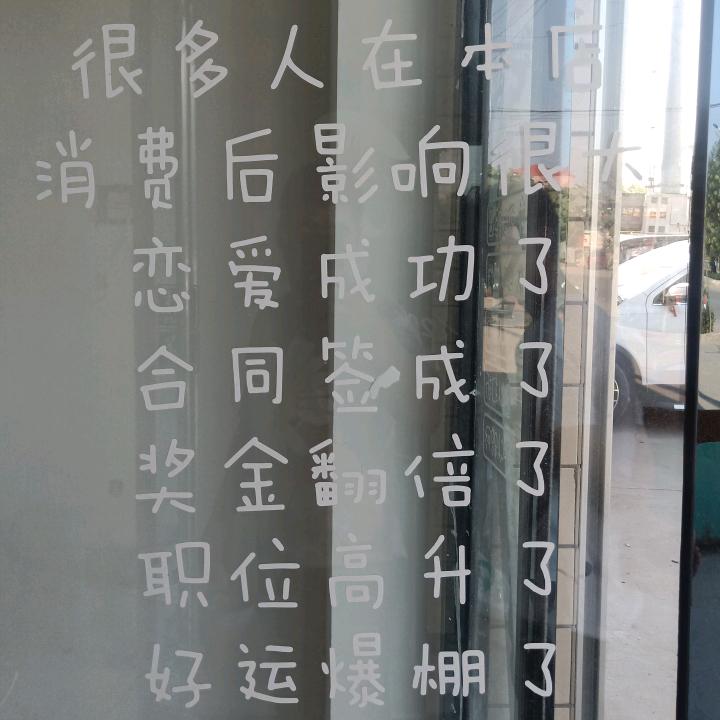 很多人在本店
消费后影响很大
恋爱成功了
合同签成了
奖金翻倍了
职位高升了
好运爆棚了